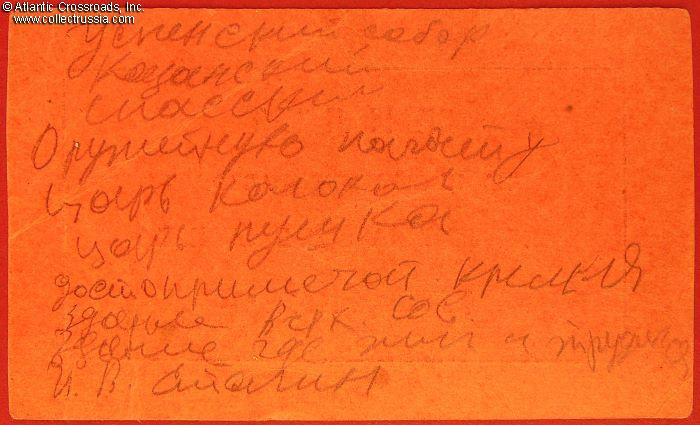 © Atlantic Crossroads, Inc.
www.collectrussia.com
Успенский собор
Казанский
Спасский
Оружейную палату
царь колокол
царь пушка
достопримечат кремля
здание всех сов.
Здание где жил и трудился
И. В. Сталин